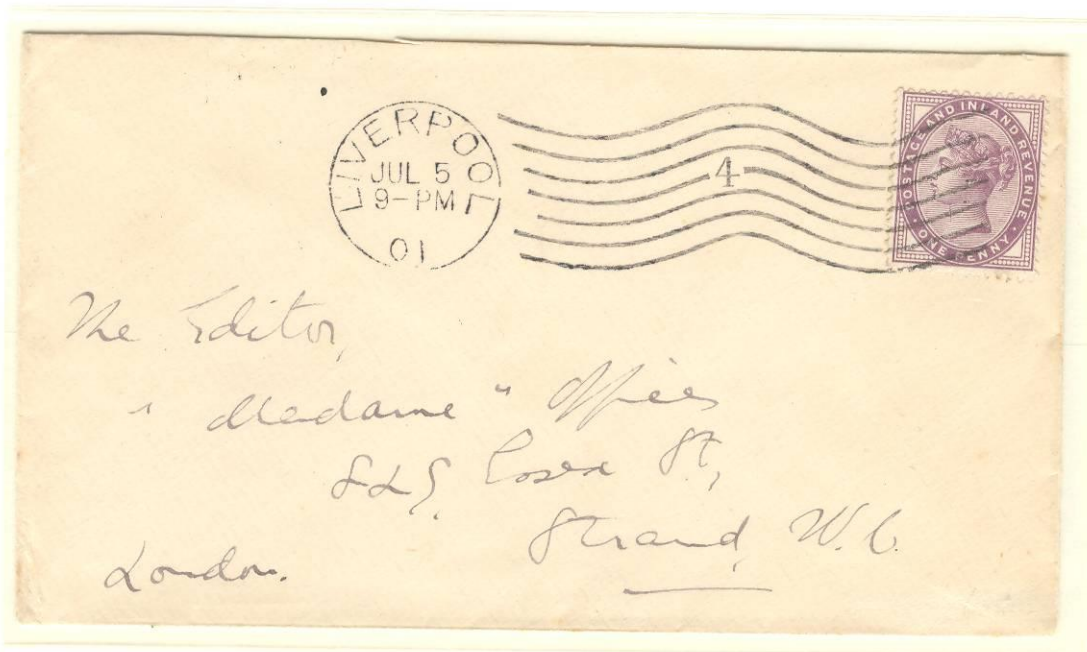 LIVERPOOL
JUL 5
9-PM
01
4
POSTAGE AND INLAND REVENUE
ONE PENNY
The Editor,
"Madame" Offices
St,
Strand, W.C.
London.